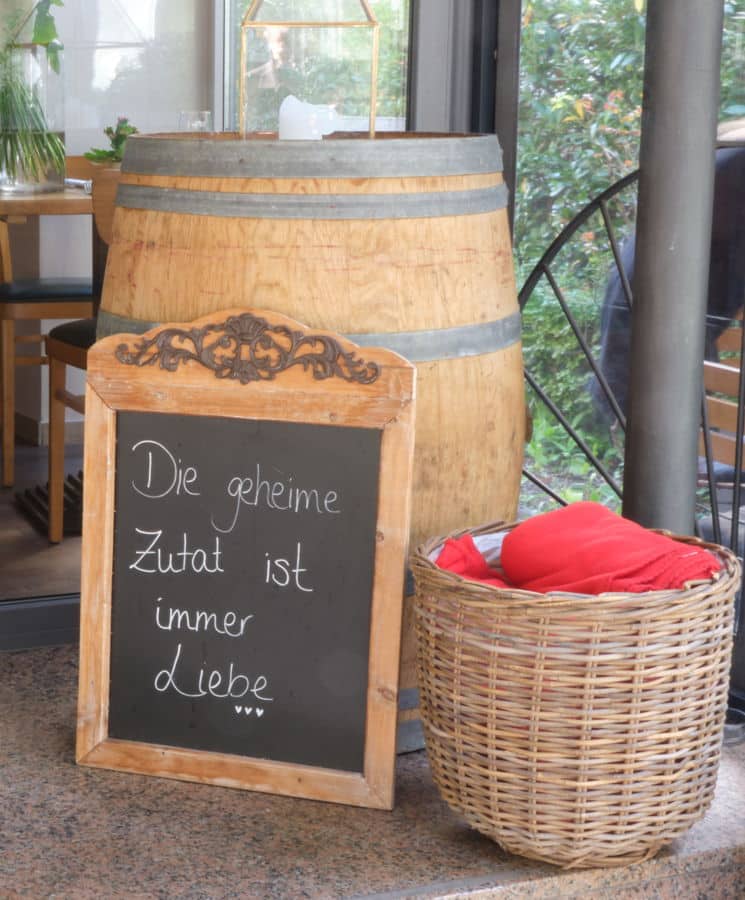 Die geheime
Zutat ist
immer
Liebe
♥♥♥